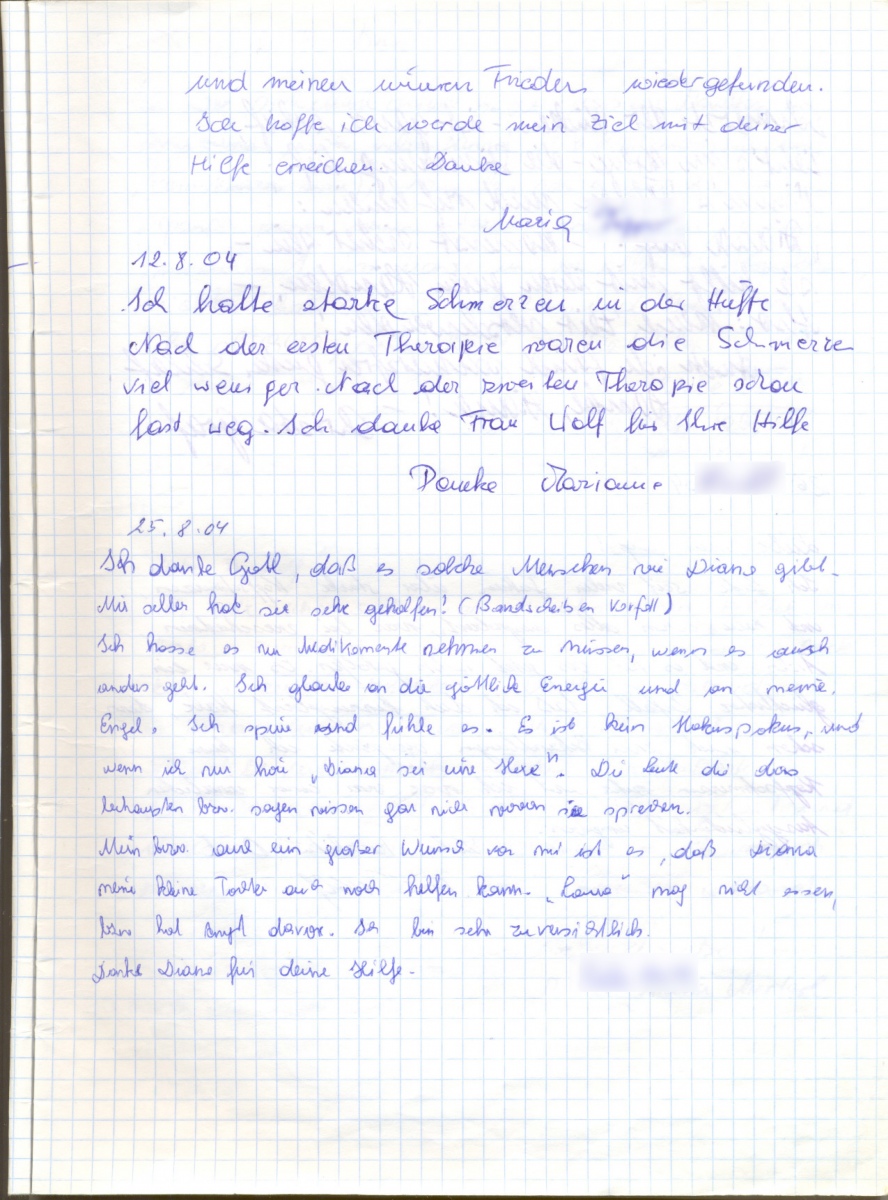 und meinen inneren Frieden wiedergefunden.
Ich hoffe ich werde mein Ziel mit deiner
Hilfe erreichen. Danke
Maria
12.8.04
Ich hatte starke Schmerzen in der Hüfte
Nach der ersten Therapie waren die Schmerzen
viel weniger. Nach der zweiten Therapie schon
fast weg. Ich danke Frau Wolf für Ihre Hilfe
Danke Marianne
25.8.04
Ich danke Gott, daß es solche Menschen wie Diana gibt.
Mir selber hat sie sehr geholfen! (Bandscheiben Vorfall)
Ich hasse es nur Medikamente nehmen zu müssen, wenn es auch
anders geht. Ich glaube an die göttliche Energie und an meine
Engel. Ich spüre und fühle es. Es ist kein Hokuspokus, und
wenn ich nur höre „Diana sei eine Hexe". Die Leute die das
behaupten bzw. sagen wissen gar nicht wovon sie sprechen.
Mein bzw. auch ein großer Wunsch von mir ist es, daß Diana
meine kleine Tochter auch noch helfen kann. mag nicht essen,
bzw hat Angst davor. Ich bin sehr zuversichtlich.
Danke Diana für deine Hilfe.